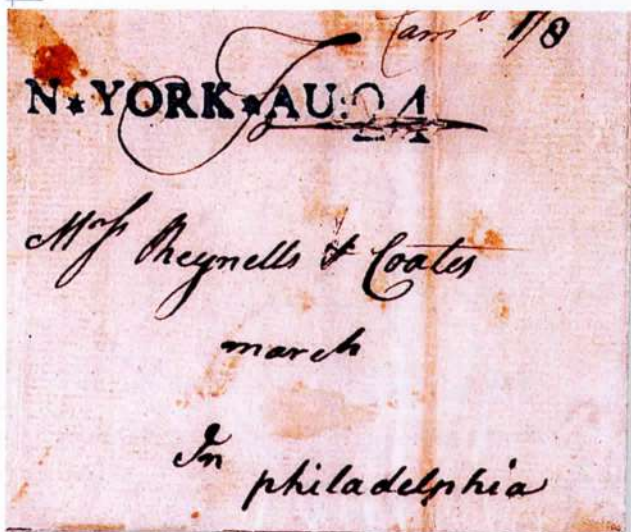 1/8
N★YORK★AU:24
Mrss Reynells & Coates
march
In
philadelphia